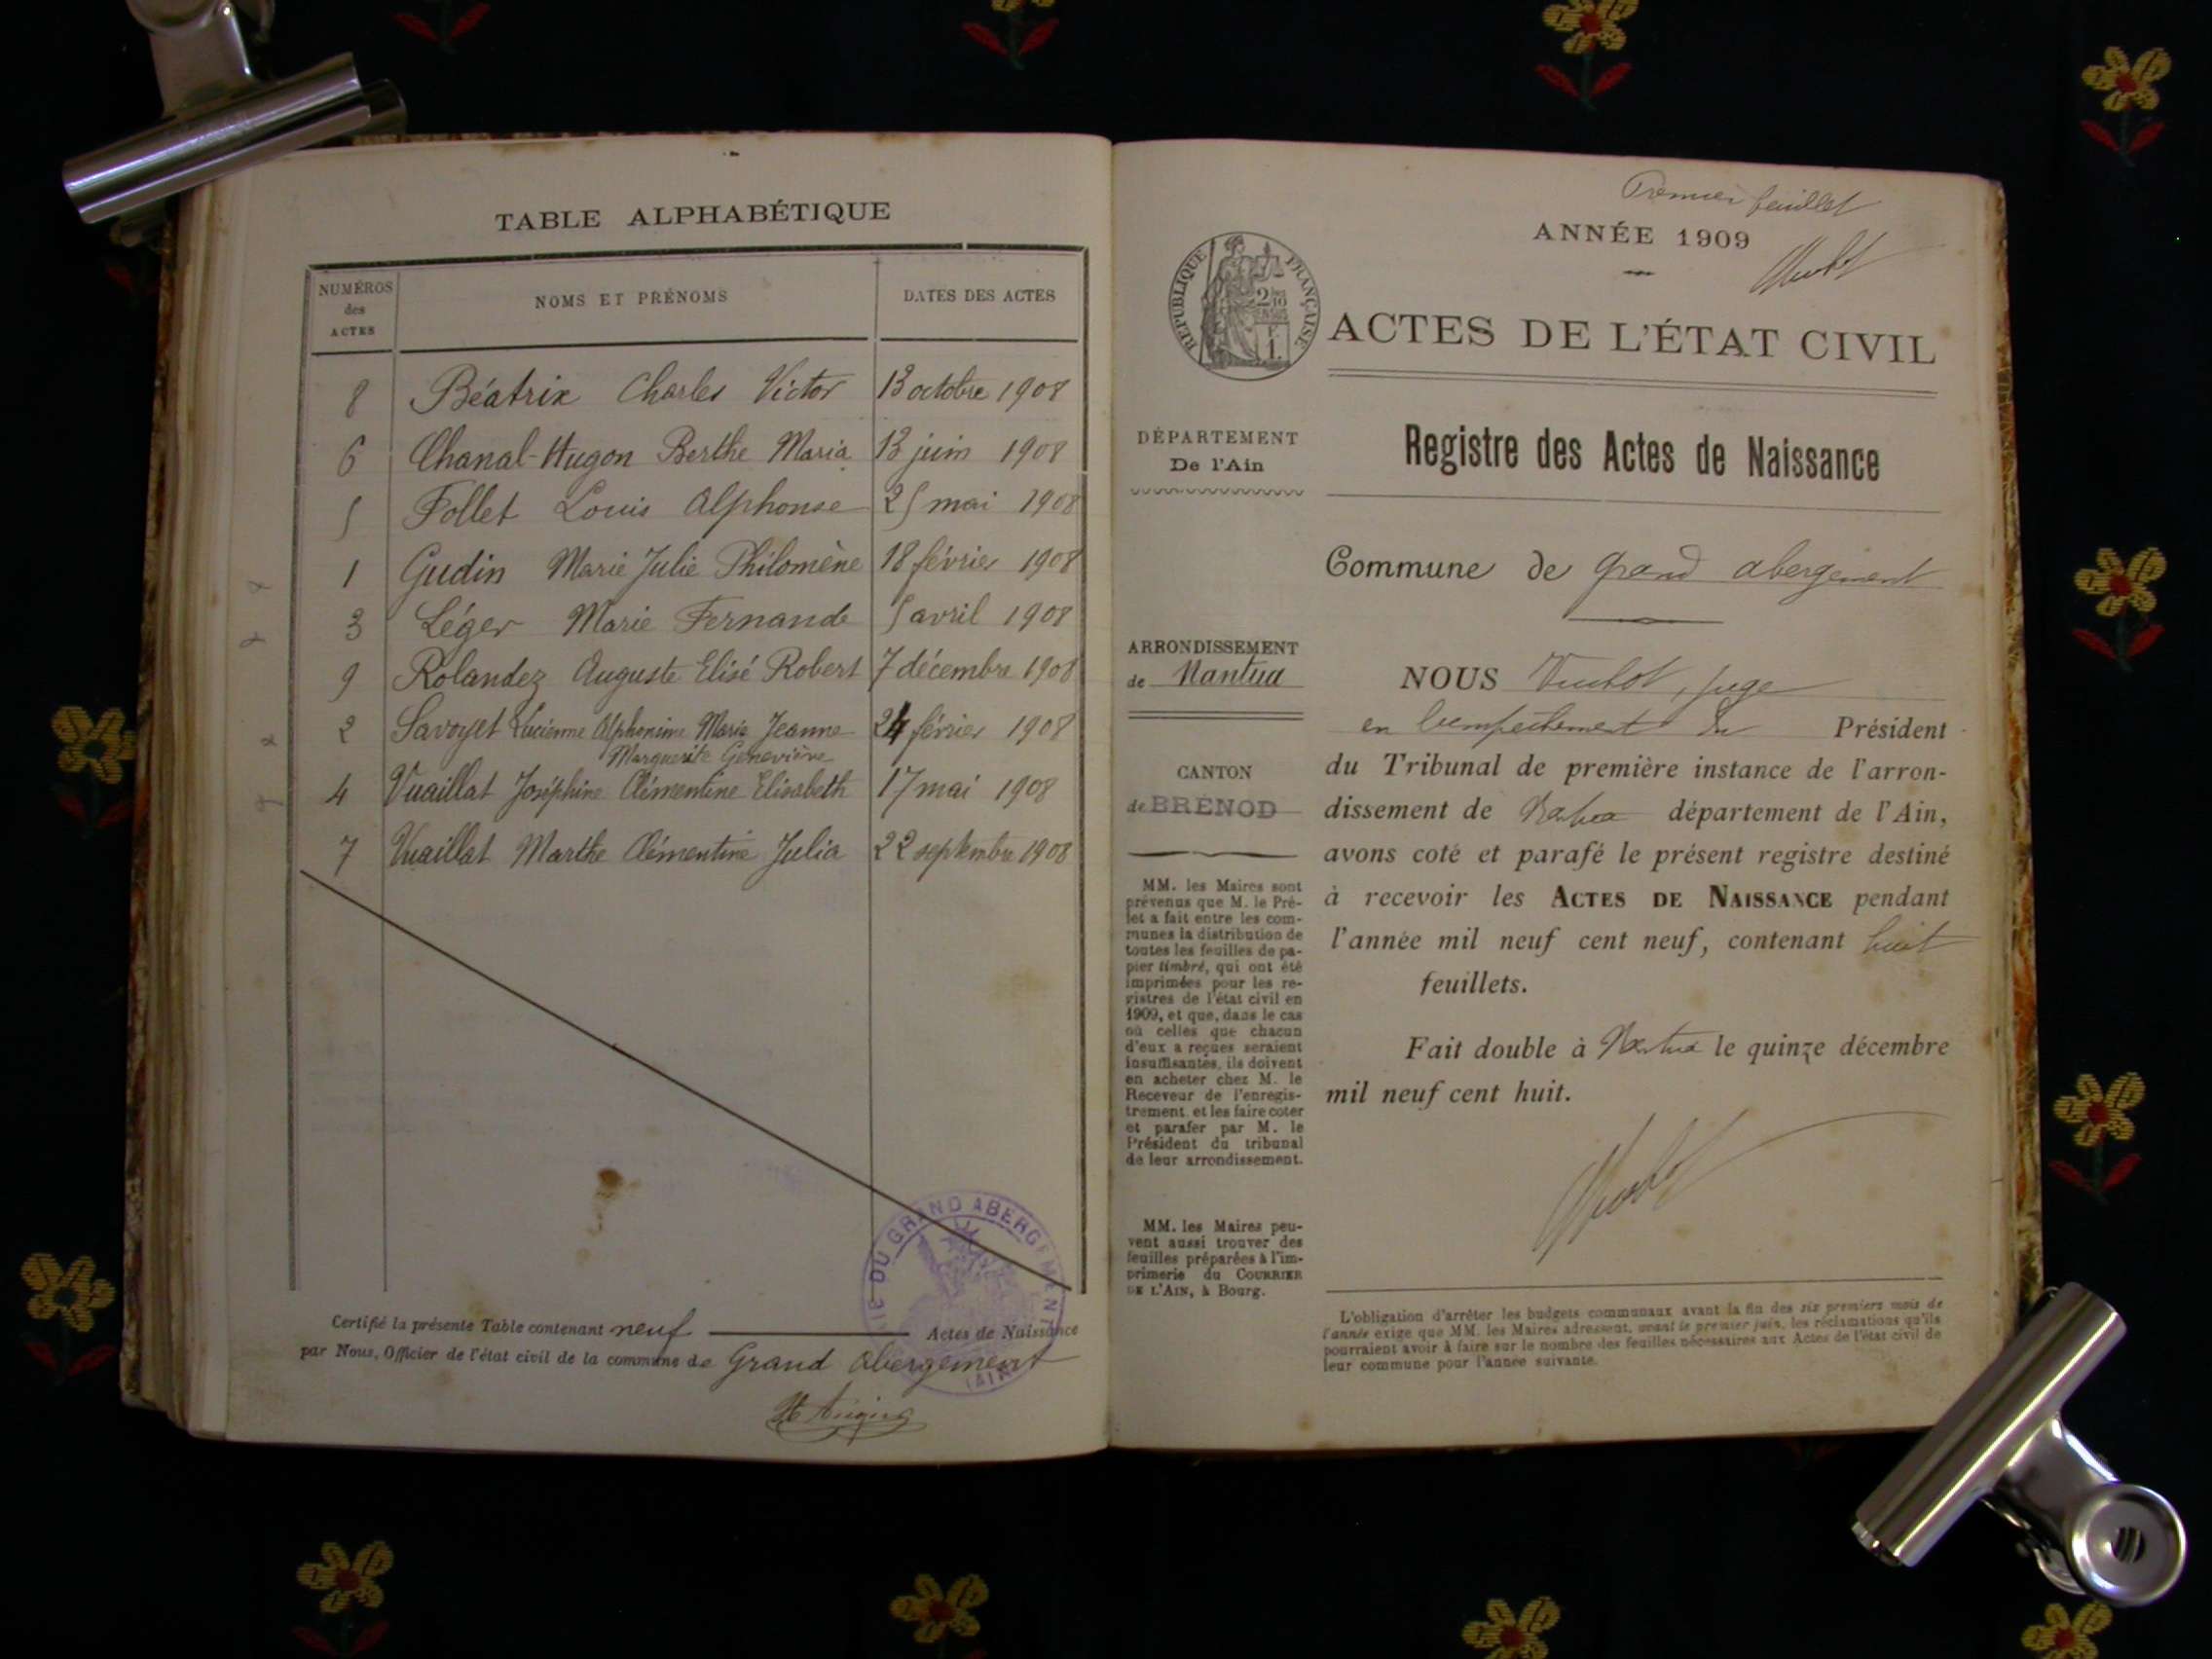 TABLE ALPHABÉTIQUE
NUMÉROS des ACTES
NOMS ET PRÉNOMS
DATES DES ACTES
8 Béatrix Charles Victor 13 octobre 1908
6 Chanal-Hugon Berthe Maria 13 juin 1908
5 Follet Louis Alphonse 25 mai 1908
1 Gudin Marie Julie Philomène 18 février 1908
3 Léger Marie Fernande 5 avril 1908
9 Rolandez Auguste Elisé Robert 7 décembre 1908
2 Savoyet Lucienne Alphonsine Marie Jeanne 24 février 1908
Marguerite Geneviève
4 Vuaillat Joséphine Clémentine Elisabeth 17 mai 1908
7 Vuaillat Marthe Clémentine Julia 22 septembre 1908
Certifié la présente Table contenant neuf Actes de Naissance
par Nous, Officier de l'état civil de la commune de Grand Abergement
DU GRAND ABERGEMENT
(AIN)
Premier feuillet
ANNÉE 1909
RÉPUBLIQUE FRANÇAISE
ACTES DE L'ÉTAT CIVIL
DÉPARTEMENT
De l'Ain
Registre des Actes de Naissance
Commune de Grand abergement
ARRONDISSEMENT
de Nantua
CANTON
de BRÉNOD
MM. les Maires sont
prévenus que M. le Pré-
fet a fait entre les com-
munes la distribution de
toutes les feuilles de pa-
pier timbré, qui ont été
imprimées pour les re-
gistres de l'état civil en
1909, et que, dans le cas
où celles que chacun
d'eux a reçues seraient
insuffisantes, ils doivent
en acheter chez M. le
Receveur de l'enregis-
trement, et les faire coter
et parafer par M. le
Président du tribunal
de leur arrondissement.
MM. les Maires peu-
vent aussi trouver des
feuilles préparées à l'im-
primerie du COURRIER
DE L'AIN, à Bourg.
NOUS juge
en l'empêchement du Président
du Tribunal de première instance de l'arron-
dissement de Nantua département de l'Ain,
avons coté et parafé le présent registre destiné
à recevoir les ACTES DE NAISSANCE pendant
l'année mil neuf cent neuf, contenant huit
feuillets.
Fait double à Nantua le quinze décembre
mil neuf cent huit.
L'obligation d'arrêter les budgets communaux avant la fin des six premiers mois de
l'année exige que MM. les Maires adressent, avant le premier juin, les réclamations qu'ils
pourraient avoir à faire sur le nombre des feuilles nécessaires aux Actes de l'état civil de
leur commune pour l'année suivante.